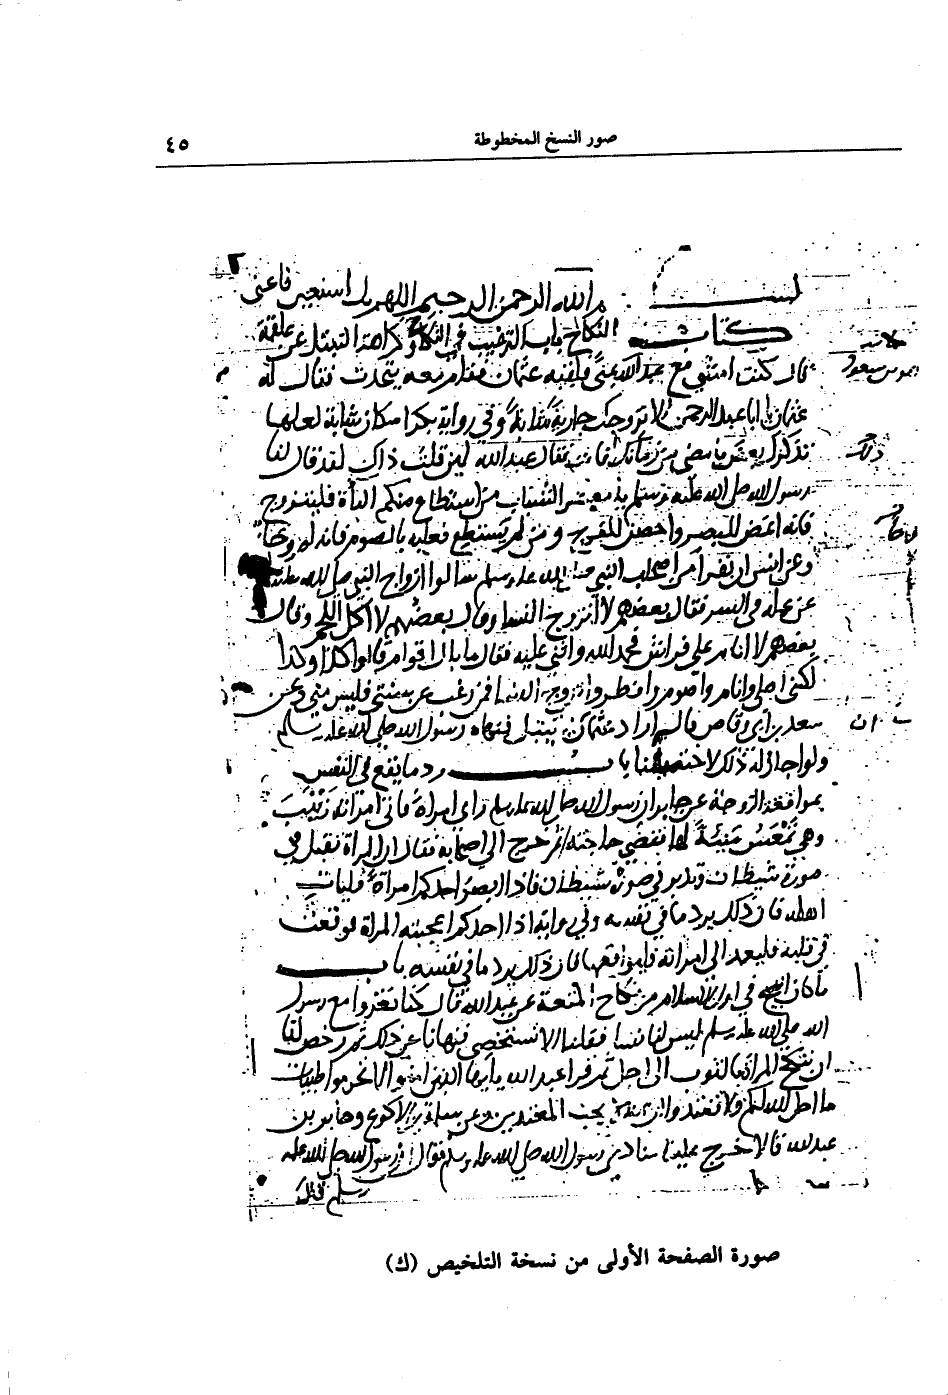 صور النسخ المخطوطة ٤٥
بسم الله الرحمن الرحيم اللهم بك استعين فاعنى
كتاب النكاح باب الترغيب في النكاح وكراهة التبتل عن علقمة
قال كنت امشى مع عبد الله بمنى فلقيه عثمان فقام معه يتحدث فقال له
عثمان يا ابا عبد الرحمن الا نزوجك جارية شابة وفي رواية بكرا مكان شابة لعلها
تذكرك بعض ما مضى من زمانك قال فقال عبد الله لين قلت ذاك لقد قال لنا
رسول الله صلى الله عليه وسلم يا معشر الشباب من استطاع منكم الباة فليتزوج
فانه اغض للبصر واحصن للفرج ومن لم يستطع فعليه بالصوم فانه له وجا
وعن انس ان نفرا من اصحاب النبي صلى الله عليه وسلم سالوا ازواج النبي صلى الله عليه
عن عمله في السر فقال بعضهم لا اتزوج النسا وقال بعضهم لا اكل اللحم وقال
بعضهم لا انام على فراش فحمد الله واثنى عليه فقال ما بال اقوام قالوا كذا وكذا
لكنى اصلى وانام واصوم وافطر واتزوج النسا فمن رغب عن سنتى فليس منى وعن
سعد بن ابى وقاص قال اراد عثمان يتبتل فنهاه رسول الله صلى الله عليه وسلم
ولو اجاز له ذلك لاختصينا باب رد ما يقع في النفس
بمواقعة الزوجة عن جابر ان رسول الله صلى الله عليه وسلم راى امراة فاتى امراته زينب
وهي تمعس منيئة لها فقضى حاجته ثم خرج الى اصحابه فقال ان المراة تقبل في
صورة شيطان وتدبر في صورة شيطان فاذا ابصر احدكم امراة فليات
اهله فان ذلك يرد ما في نفسه وفي رواية اذا احدكم اعجبته المراة فوقعت
في قلبه فليعمد الى امراته فليواقعها فان ذلك يرد ما في نفسه باب
ما كان في اول الاسلام من نكاح المتعة عن عبد الله قال كنا نغزوا مع رسول
الله صلى الله عليه وسلم ليس لنا نسا فقلنا الا نستخصى فنهانا عن ذلك ثم رخص لنا
ان ننكح المراة بالثوب الى اجل ثم قرا عبد الله يا ايها الذين امنوا لا تحرموا طيبات
ما احل الله لكم ولا تعتدوا ان الله لا يحب المعتدين وعن سلمة بن الاكوع وجابر بن
عبد الله قالا خرج علينا منادى رسول الله صلى الله عليه وسلم فقال ان رسول الله صلى الله عليه
وسلم
ذلك
صورة الصفحة الأولى من نسخة التلخيص (ك)